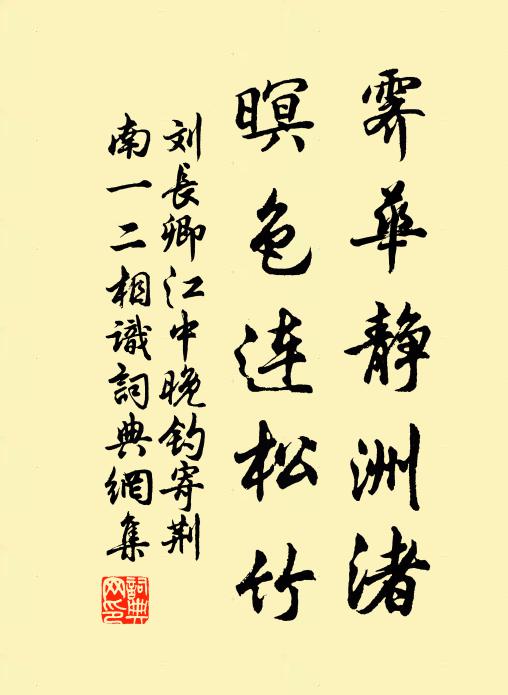 霁華静洲渚
暝色連松竹
刘長卿江中晚釣寄荆
南一二相識詞典網集
詞典网印